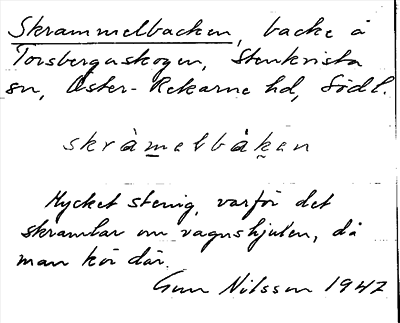 Skrammelbacken, backe å
Torsbergaskogen, Stenkvista
sn, Öster-Rekarne hd, Södl.
skràmelbåken
Mycket stenig, varför det
skramlar om vagnshjulen, då
man kör där.
Gun Nilsson 1942